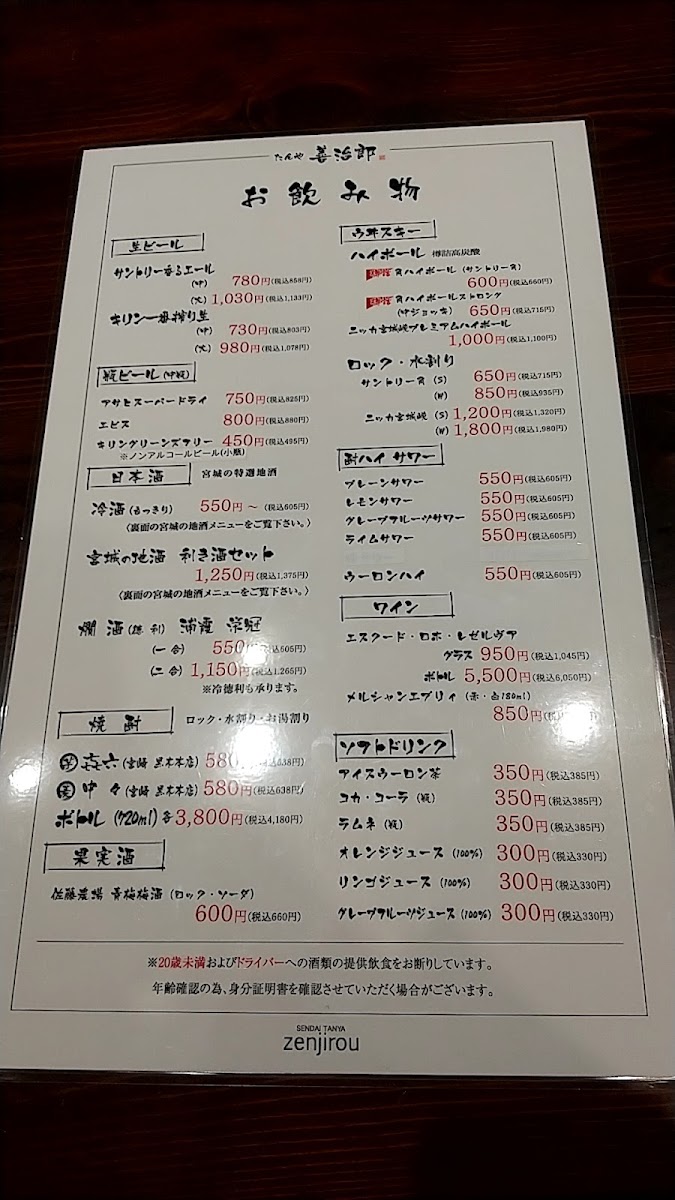 たんや 善治郎
お飲み物
生ビール
サントリー香るエール
(中) 780円(税込858円)
(大) 1,030円(税込1,133円)
キリン一番搾り生
(中) 730円(税込803円)
(大) 980円(税込1,078円)
瓶ビール (中瓶)
アサヒスーパードライ 750円(税込825円)
エビス 800円(税込880円)
キリングリーンズフリー 450円(税込495円)
※ノンアルコールビール(小瓶)
日本酒 宮城の特選地酒
冷酒(もっきり) 550円～(税込605円)
〈裏面の宮城の地酒メニューをご覧下さい。〉
宮城の地酒 利き酒セット
1,250円(税込1,375円)
〈裏面の宮城の地酒メニューをご覧下さい。〉
燗酒(徳利) 浦霞 栄冠
(一合) 550円(税込605円)
(二合) 1,150円(税込1,265円)
※冷徳利も承ります。
焼酎 ロック・水割り・お湯割り
芋 㐂六(宮崎 黒木本店) 580円(税込638円)
麦 中々(宮崎 黒木本店) 580円(税込638円)
ボトル(720ml)各3,800円(税込4,180円)
果実酒
佐藤農場 青梅梅酒(ロック・ソーダ)
600円(税込660円)
ウヰスキー
ハイボール 樽詰高炭酸
角ハイボール(サントリー角)
600円(税込660円)
角ハイボールストロング
(中ジョッキ) 650円(税込715円)
ニッカ宮城峡プレミアムハイボール
1,000円(税込1,100円)
ロック・水割り
サントリー角 (S) 650円(税込715円)
(W) 850円(税込935円)
ニッカ宮城峡 (S) 1,200円(税込1,320円)
(W) 1,800円(税込1,980円)
酎ハイ サワー
プレーンサワー 550円(税込605円)
レモンサワー 550円(税込605円)
グレープフルーツサワー 550円(税込605円)
ライムサワー 550円(税込605円)
ウーロンハイ 550円(税込605円)
ワイン
エスクード・ロホ・レゼルヴァ
グラス 950円(税込1,045円)
ボトル 5,500円(税込6,050円)
メルシャンエブリィ (赤・白180ml)
850円(税込
ソフトドリンク
アイスウーロン茶 350円(税込385円)
コカ・コーラ (瓶) 350円(税込385円)
ラムネ (瓶) 350円(税込385円)
オレンジジュース (100%) 300円(税込330円)
リンゴジュース (100%) 300円(税込330円)
グレープフルーツジュース (100%) 300円(税込330円)
※20歳未満およびドライバーへの酒類の提供飲食をお断りしています。
年齢確認の為、身分証明書を確認させていただく場合がございます。
SENDAI TANYA
zenjirou